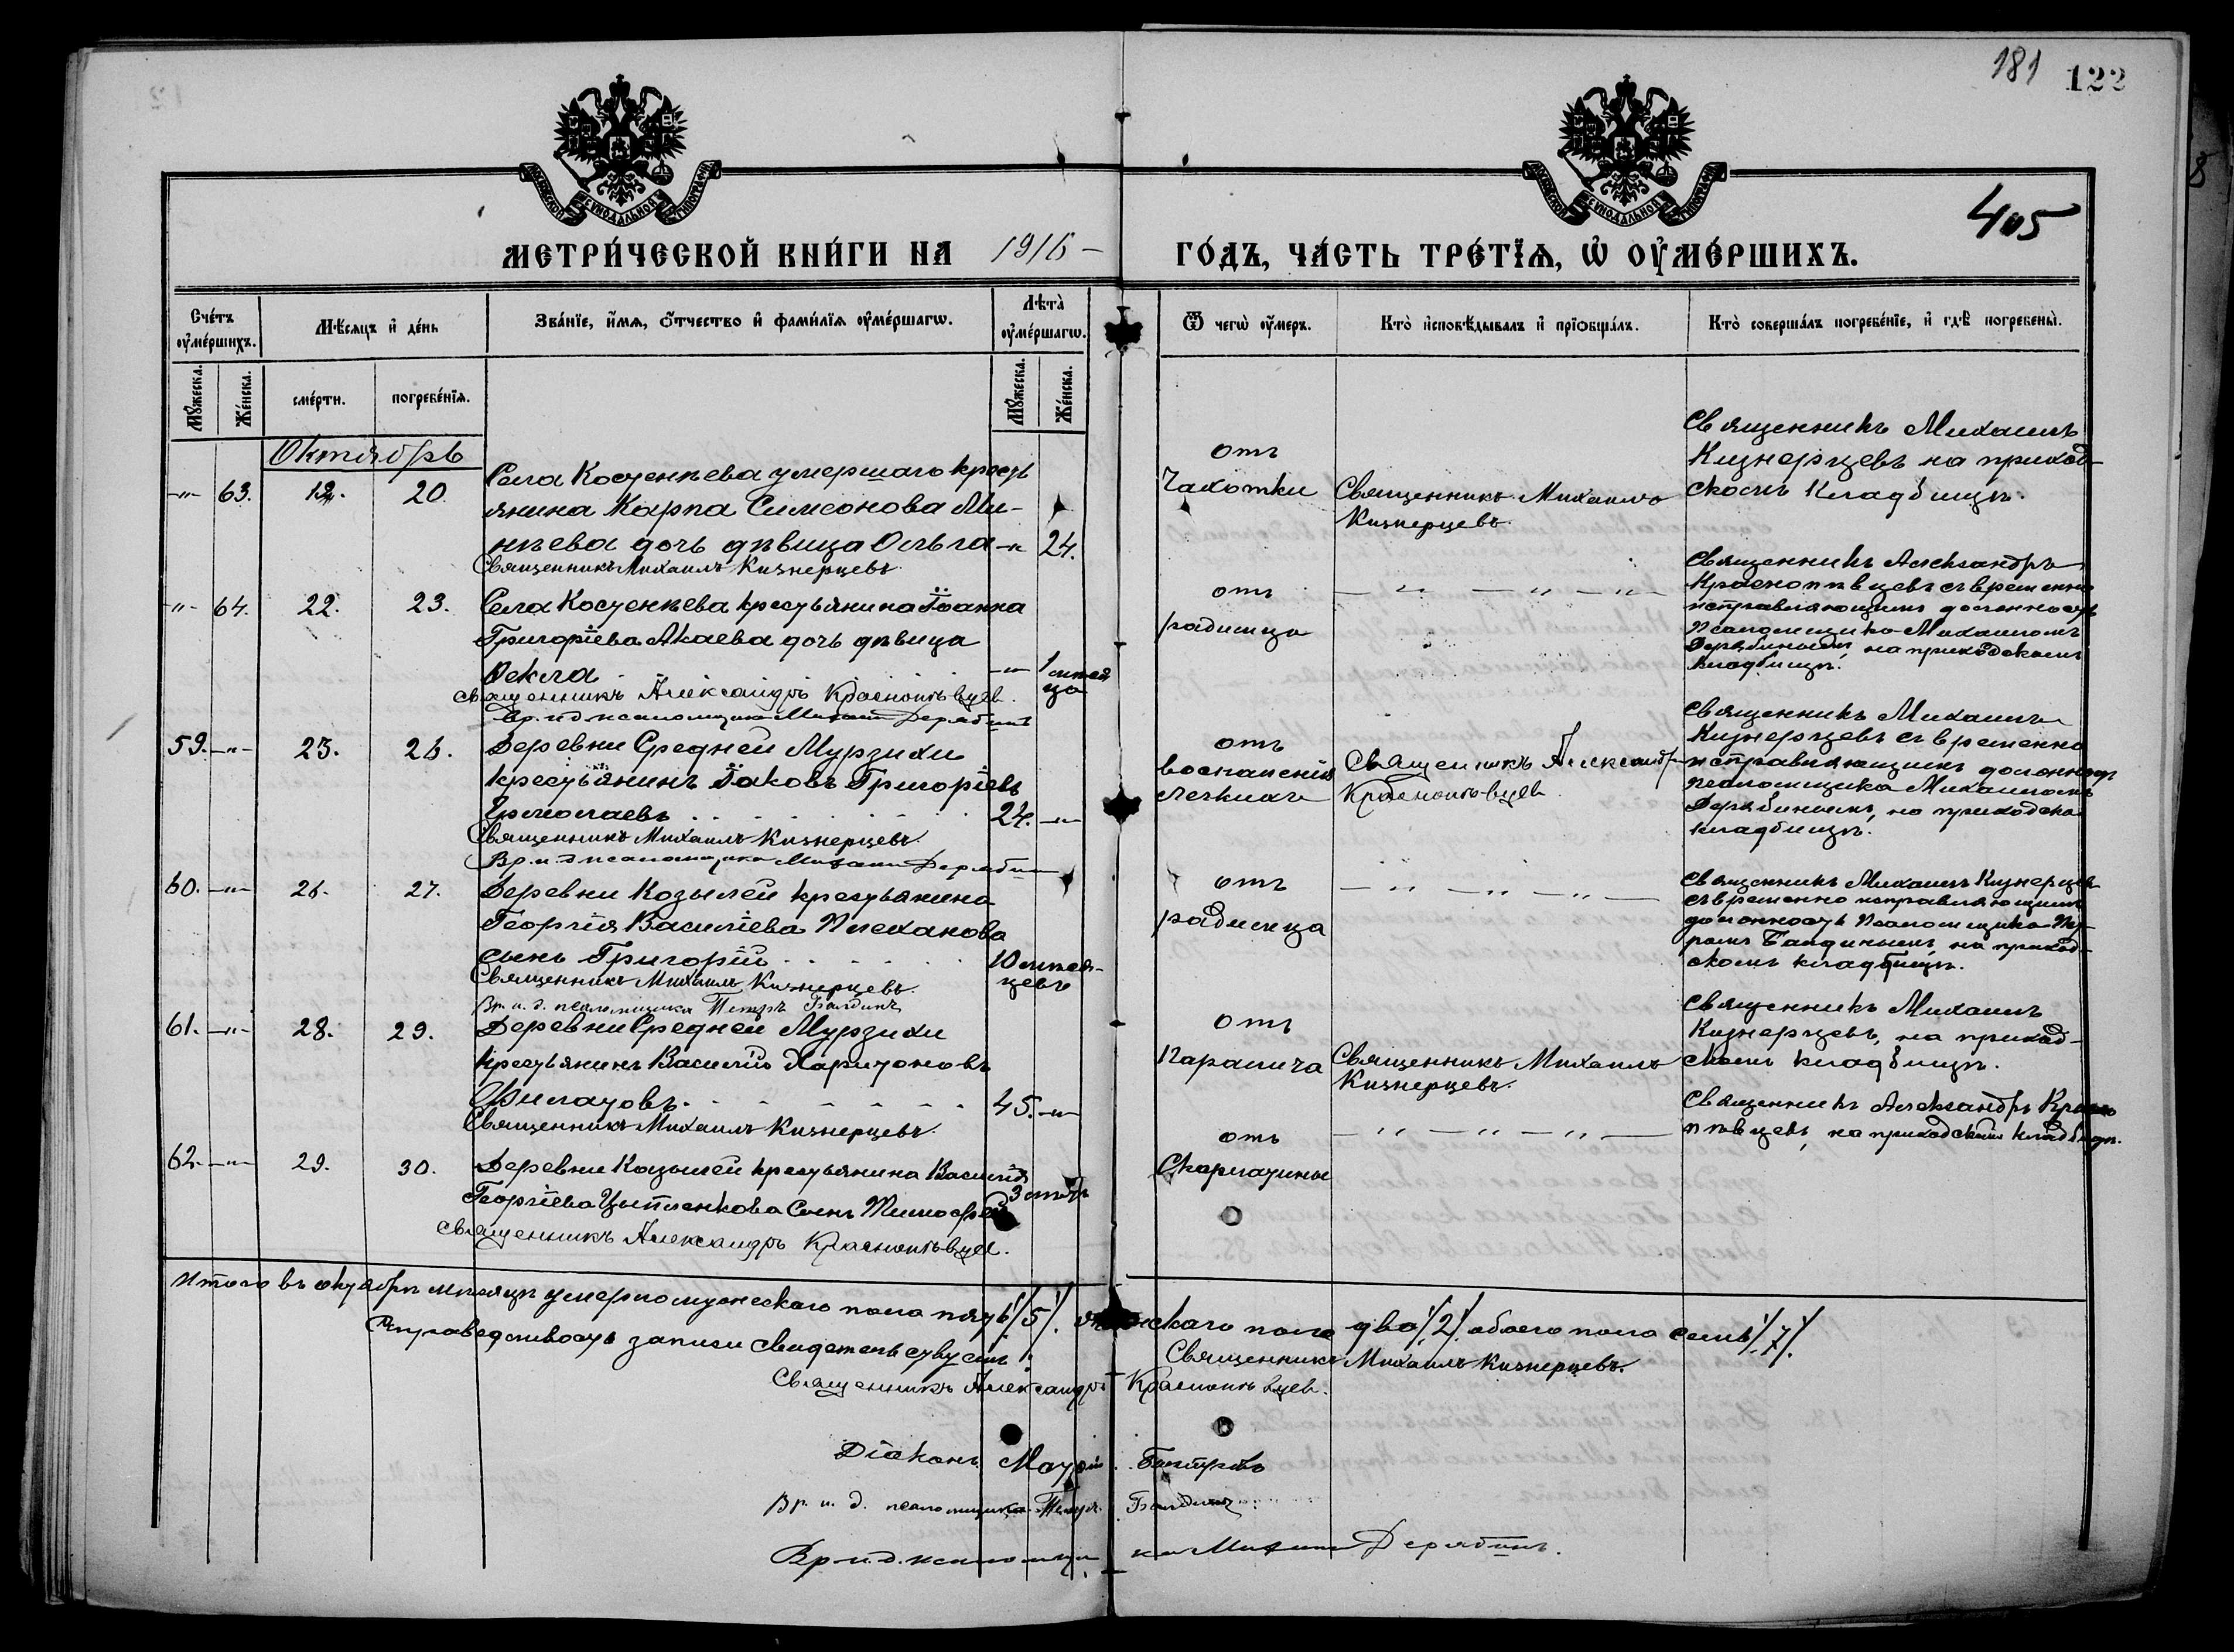 181 122
405
МЕТРИ́ЧЕСКОЙ КНИ́ГИ НА 1916 — ГО́ДЪ, ЧА́СТЬ ТРЕ́ТЇѦ, Ѡ ОУ҆МЕ́РШИХЪ.
Сче́тъ оу҆ме́ршихъ.
Мѣ́сяцъ и҆ де́нь
Зва́нїе, и҆́мѧ, ѻ҆́тчество и҆ фами́лїѧ оу҆ме́ршагѡ.
Лѣ́та̀ оу҆ме́ршагѡ.
Ѿ чегѡ̀ оу҆́меръ.
Кто̀ и҆сповѣ́дывалъ и҆ прїѡбща́лъ.
Кто̀ соверша́лъ погребе́нїе, и҆ гдѣ̀ погребены̀.
Мꙋ́жеска. Же́нска. сме́рти. погребе́нїѧ. Мꙋ́жеска. Же́нска.
Октябрь
-"- 63. 12. 20.
Села Косяенѣева умершаго кресть
янина Карпа Симеонова Ми-
нѣева дочь дѣвица Ольга -"- 24.
Священникъ Михаилъ Кизнерцевъ.
отъ
Чахотки
Священникъ Михаилъ
Кизнерцевъ.
Священникъ Михаилъ
Кизнерцевъ на приход-
скомъ кладбищѣ.
-"- 64. 22. 23.
Села Косяенѣева крестьянина Іоанна
Григоріева Акаева дочь дѣвица
Ѳекла -"- 1 мѣся
ца
священникъ Александръ Краснопѣвцев.
Вр. и д псаломщика Михаилъ Дерябинъ
отъ
родимца
— " — " — " —
Священникъ Александръ
Краснопѣвцевъ съ временно
исправляющимъ должность
Псаломщика Михаиломъ
Дерябинымъ, на приходскомъ
кладбищѣ.
59. -"- 23. 26.
Деревни Средней Мурзихи
крестьянинъ Іаковъ Григоріевъ
Ермолаевъ 24. -"-
Священникъ Михаилъ Кизнерцевъ.
Вр. и д псаломщика Михаилъ Дерябинъ
отъ
воспаленія
легкихъ
Священникъ Александръ
Краснопѣвцев.
Священникъ Михаилъ
Кизнерцевъ съ временно
исправляющимъ должность
псаломщика Михаиломъ
Дерябинымъ, на приходском
кладбищѣ.
60. -"- 26. 27.
Деревни Козылей крестьянина
Георгія Василіева Плеханова
сынъ Григорій 10 мѣся-
цевъ
Священникъ Михаилъ Кизнерцевъ.
Вр. и. д. псаломщика Петръ Балдинъ
отъ
родимца
— " — " — " —
Священникъ Михаилъ Кизнерцев
съ временно исправляющимъ
должность Псаломщика Пе-
ромъ Балдинымъ, на приход-
скомъ кладбищѣ.
61. -"- 28. 29.
Деревни Средней Мурзихи
крестьянинъ Василій Харитоновъ
Филатовъ. 45. -"-
Священникъ Михаилъ Кизнерцевъ.
отъ
Паралича
Священникъ Михаилъ
Кизнерцевъ.
Священникъ Михаилъ
Кизнерцевъ, на приход-
скомъ кладбищѣ.
62. -"- 29. 30.
Деревни Козылей крестьянина Василія
Георгіева Цыпленкова Сынъ Тимофей 3 лѣтъ
священникъ Александръ Краснопѣвцев.
отъ
Скарлатины
— " — " — " —
Священникъ Александръ Красно
пѣвцевъ, на приходскомъ кладбищѣ.
Итого въ октябрѣ мѣсяцѣ умерло мужескаго пола пять /5/. женскаго пола два /2/. обоего пола семь /7/.
Справедливость записи свидетельствуемъ:
Священникъ Михаилъ Кизнерцевъ.
Священникъ Александръ Краснопѣвцев.
Діаконъ
Вр. и. д. псаломщика Петръ Балдинъ.
Вр. и. д. псаломщика Михаилъ Дерябинъ.